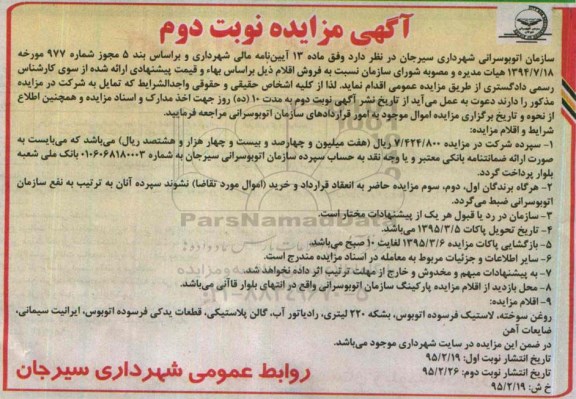 آگهی مزایده نوبت دوم
سازمان اتوبوسرانی شهرداری سیرجان در نظر دارد وفق ماده ۱۳ آیین‌نامه مالی شهرداری و براساس بند ۵ مجوز شماره ۹۷۷ مورخه
۱۳۹۴/۷/۱۸ هیات مدیره و مصوبه شورای سازمان نسبت به فروش اقلام ذیل براساس بهاء و قیمت پیشنهادی ارائه شده از سوی کارشناس
رسمی دادگستری از طریق مزایده عمومی اقدام نماید. لذا از کلیه اشخاص حقیقی و حقوقی واجدالشرایط که تمایل به شرکت در مزایده
مذکور را دارند دعوت به عمل می‌آید از تاریخ نشر آگهی نوبت دوم به مدت ۱۰ (ده) روز جهت اخذ مدارک و اسناد مزایده و همچنین اطلاع
از نحوه و تاریخ برگزاری مزایده اموال موجود به امور قراردادهای سازمان اتوبوسرانی مراجعه فرمایید.
شرایط و اقلام مزایده:
۱- سپرده شرکت در مزایده ۷/۴۲۴/۸۰۰ ریال (هفت میلیون و چهارصد و بیست و چهار هزار و هشتصد ریال) می‌باشد که می‌بایست به
صورت ارائه ضمانتنامه بانکی معتبر و یا وجه نقد به حساب سپرده سازمان اتوبوسرانی سیرجان به شماره ۰۱۰۶۰۶۸۱۸۰۰۰۳ بانک ملی شعبه
بلوار پرداخت گردد.
۲- هرگاه برندگان اول، دوم، سوم مزایده حاضر به انعقاد قرارداد و خرید (اموال مورد تقاضا) نشوند سپرده آنان به ترتیب به نفع سازمان
اتوبوسرانی ضبط می‌گردد.
۳- سازمان در رد یا قبول هر یک از پیشنهادات مختار است.
۴- تاریخ تحویل پاکات ۱۳۹۵/۳/۵ می‌باشد.
۵- بازگشایی پاکات مزایده ۱۳۹۵/۳/۶ لغایت ۱۰ صبح می‌باشد.
۶- سایر اطلاعات و جزئیات مربوط به معامله در اسناد مزایده مندرج است.
۷- به پیشنهادات مبهم و مخدوش و خارج از مهلت ترتیب اثر داده نخواهد شد.
۸- محل بازدید از اقلام مزایده پارکینگ سازمان اتوبوسرانی واقع در انتهای بلوار قاآنی می‌باشد.
۹- اقلام مزایده:
روغن سوخته، لاستیک فرسوده اتوبوس، بشکه ۲۲۰ لیتری، رادیاتور آب، گالن پلاستیکی، قطعات یدکی فرسوده اتوبوس، ایرانیت سیمانی،
ضایعات آهن
در ضمن این مزایده در سایت شهرداری موجود می‌باشد.
تاریخ انتشار نوبت اول: ۹۵/۲/۱۹
تاریخ انتشار نوبت دوم: ۹۵/۲/۲۶
خ ش: ۹۵/۲/۱۹
روابط عمومی شهرداری سیرجان
ParsNamadData